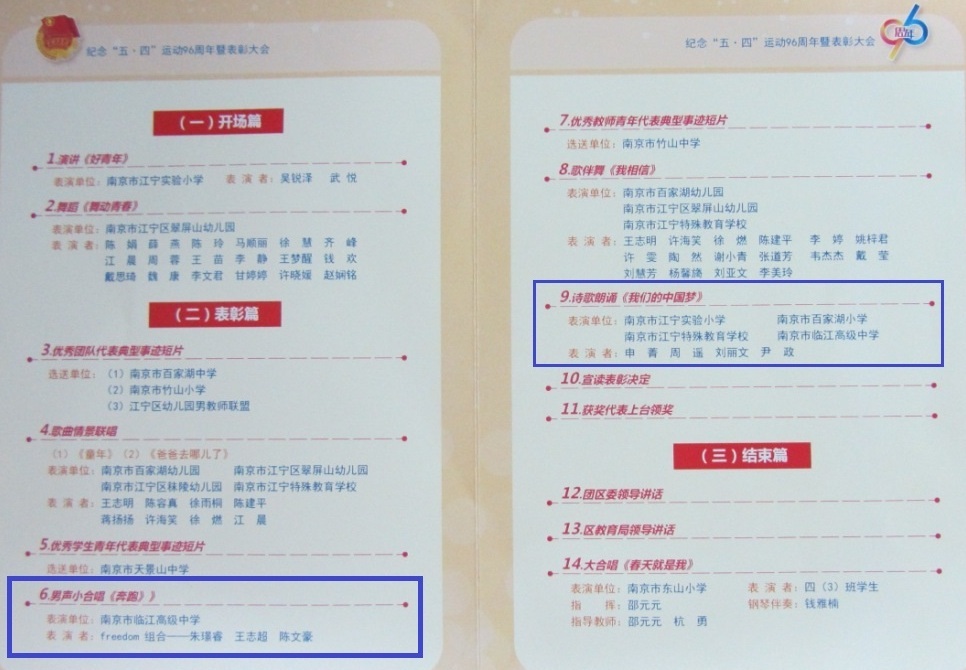 纪念“五·四”运动96周年暨表彰大会
（一）开场篇
1.演讲《好青年》
表演单位：南京市江宁实验小学 表 演 者：吴锐泽 武 悦
2.舞蹈《舞动青春》
表演单位：南京市江宁区翠屏山幼儿园
表 演 者：陈 娟 薛 燕 陈 玲 马顺丽 徐 慧 齐 峰
江 晨 周 蓉 王 苗 李 静 王梦醒 钱 欢
戴思琦 魏 康 李文君 甘婷婷 许晓媛 赵娴铭
（二）表彰篇
3.优秀团队代表典型事迹短片
选送单位：（1）南京市百家湖中学
（2）南京市竹山小学
（3）江宁区幼儿园男教师联盟
4.歌曲情景联唱
（1）《童年》（2）《爸爸去哪儿了》
表演单位：南京市百家湖幼儿园 南京市江宁区翠屏山幼儿园
南京市江宁区秣陵幼儿园 南京市江宁特殊教育学校
表 演 者：王志明 陈容真 徐雨桐 陈建平
蒋扬扬 许海笑 徐 燃 江 晨
5.优秀学生青年代表典型事迹短片
选送单位：南京市天景山中学
6.男声小合唱《奔跑》》
表演单位：南京市临江高级中学
表 演 者：freedom 组合——朱璟睿 王志超 陈文豪
纪念“五·四”运动96周年暨表彰大会
96
周年
7.优秀教师青年代表典型事迹短片
选送单位：南京市竹山中学
8.歌伴舞《我相信》
表演单位：南京市百家湖幼儿园
南京市江宁区翠屏山幼儿园
南京市江宁特殊教育学校
表 演 者：王志明 许海笑 徐 燃 陈建平 李 婷 姚梓君
许 雯 陶 然 谢小青 张道芳 韦杰杰 戴 莹
刘慧芳 杨馨旖 刘亚文 李美玲
9.诗歌朗诵《我们的中国梦》
表演单位：南京市江宁实验小学 南京市百家湖小学
南京市江宁特殊教育学校 南京市临江高级中学
表 演 者：申 菁 周 遥 刘丽文 尹 政
10.宣读表彰决定
11.获奖代表上台领奖
（三）结束篇
12.团区委领导讲话
13.区教育局领导讲话
14.大合唱《春天就是我》
表演单位：南京市东山小学 表 演 者：四（3）班学生
指 挥：邵元元 钢琴伴奏：钱雅楠
指导教师：邵元元 杭 勇